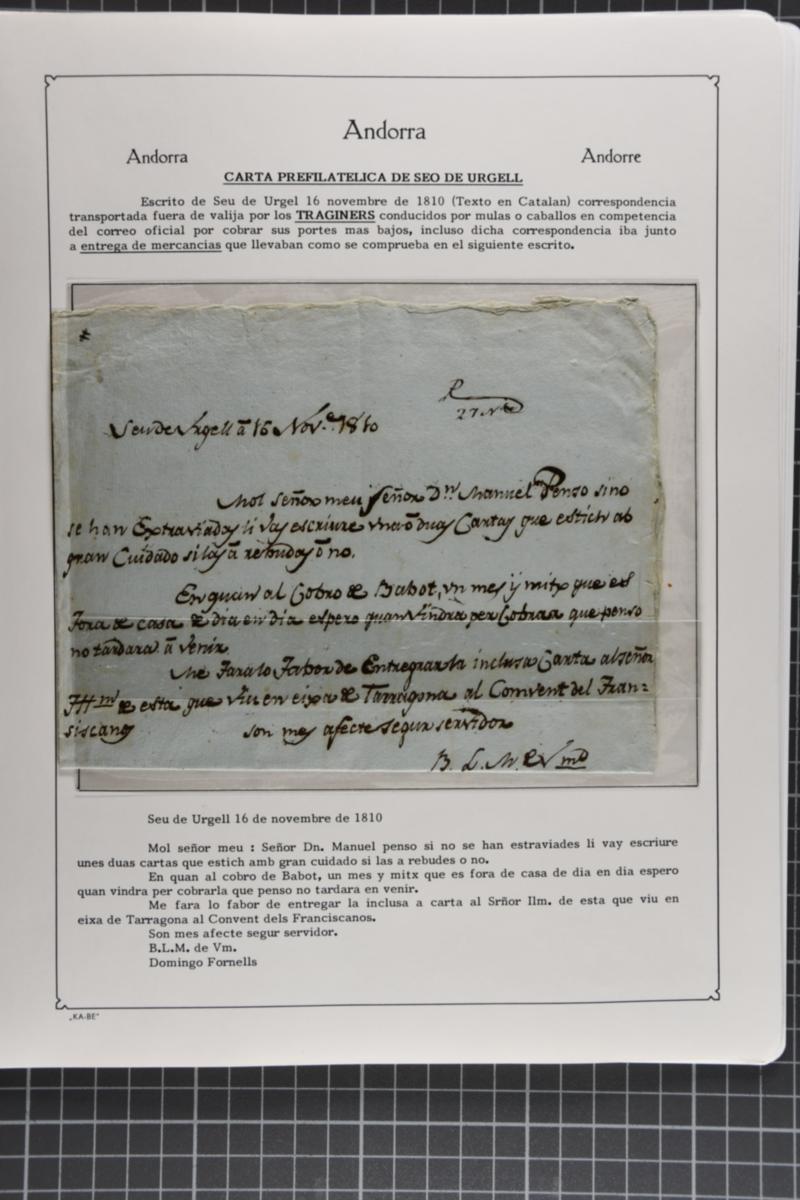 Andorra
Andorra Andorre
CARTA PREFILATELICA DE SEO DE URGELL
Escrito de Seu de Urgel 16 novembre de 1810 (Texto en Catalan) correspondencia
transportada fuera de valija por los TRAGINERS conducidos por mulas o caballos en competencia
del correo oficial por cobrar sus portes mas bajos, incluso dicha correspondencia iba junto
a entrega de mercancias que llevaban como se comprueba en el siguiente escrito.
R
27 N
Seu de Urgell â 16 Nov.e 1810
Mol señor meu señor Dn. Manuel Penso sino
se han Extraviadas li vay escriure una ô duas Cartas que estich ab
gran Cuidado si las â rebudas ô no.
En quan al Cobro de Babot, un mes y mitx que es
fora de casa de dia en dia espero quan vindrà per Cobrar que penso
no tardara â venir
Me fara lo fabor de Entregar la inclusa Carta al señor
Illm de esta que viu en eixa de Tarragona al Comvent del Fran=
siscans son mes afecte segur servidor
B. L. M. de Vmd
Seu de Urgell 16 de novembre de 1810
Mol señor meu : Señor Dn. Manuel penso si no se han estraviades li vay escriure
unes duas cartas que estich amb gran cuidado si las a rebudes o no.
En quan al cobro de Babot, un mes y mitx que es fora de casa de dia en dia espero
quan vindra per cobrarla que penso no tardara en venir.
Me fara lo fabor de entregar la inclusa a carta al Srñor Ilm. de esta que viu en
eixa de Tarragona al Convent dels Franciscanos.
Son mes afecte segur servidor.
B.L.M. de Vm.
Domingo Fornells
„KA-BE"